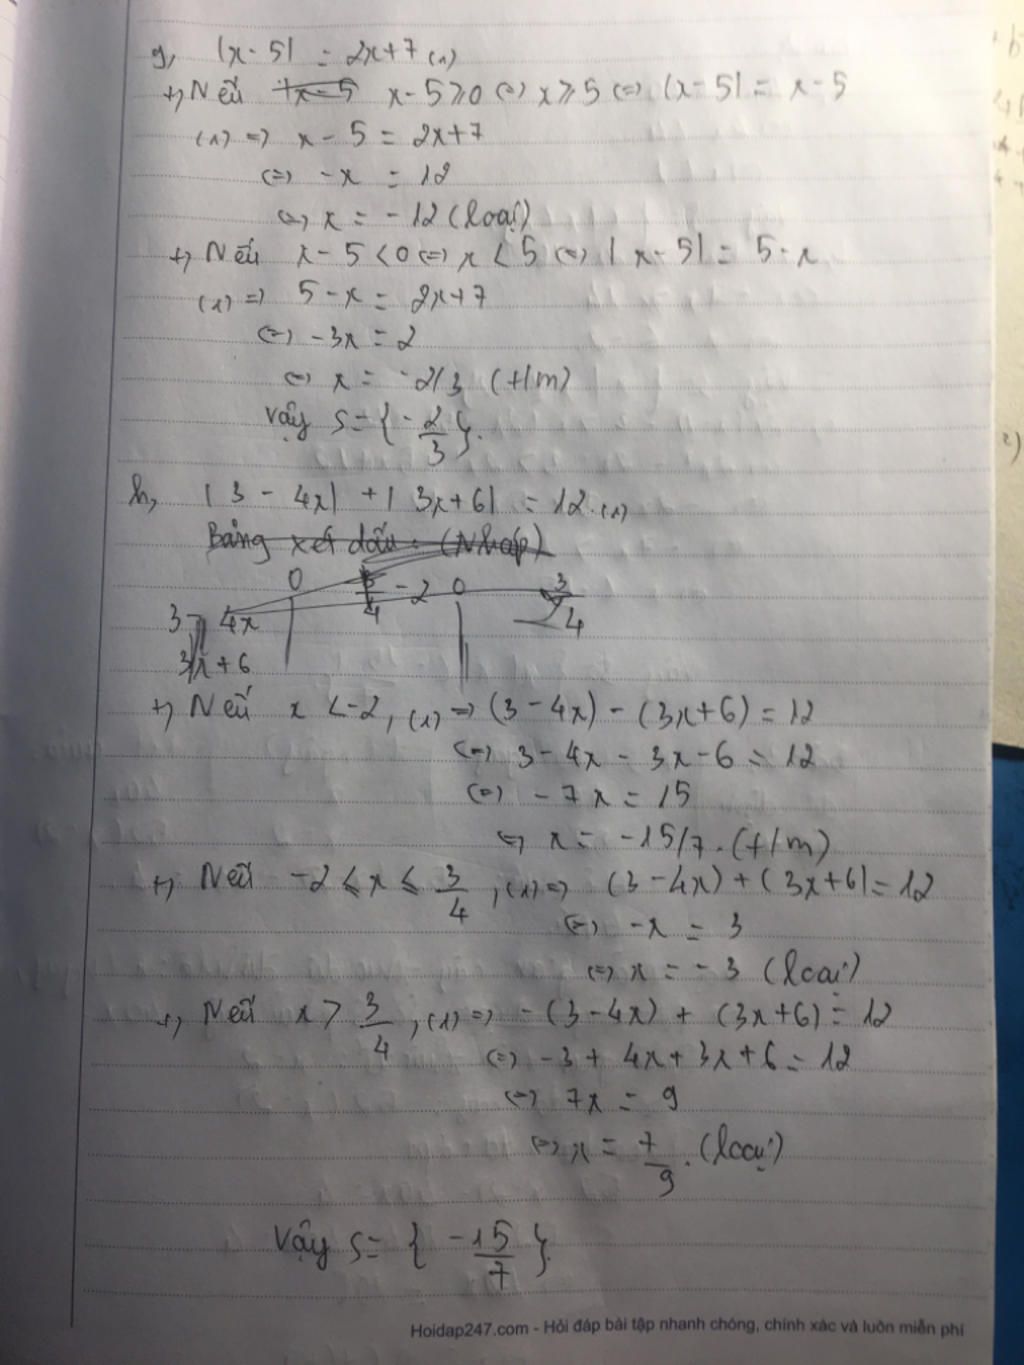 g, |x - 5| = 2x+7 (1)
+, Nếu x - 5 ⩾ 0 <=> x ⩾ 5 <=> |x - 5| = x - 5
(1) => x - 5 = 2x+7
<=> -x = 12
<=> x = -12 (loại)
+, Nếu x - 5 < 0 <=> x < 5 <=> |x - 5| = 5 - x
(1) => 5 - x = 2x+7
<=> -3x = 2
<=> x = -2/3 (t/m)
Vậy S = { -2/3 }.
h, |3 - 4x| + |3x+6| = 12. (1)
Bảng xét dấu: (Nháp)
0 3/4 -2 0 3/4
3 - 4x
3x + 6
+, Nếu x < -2, (1) => (3 - 4x) - (3x+6) = 12
<=> 3 - 4x - 3x - 6 = 12
<=> -7x = 15
<=> x = -15/7. (t/m)
+, Nếu -2 ⩽ x ⩽ 3/4, (1) => (3 - 4x) + (3x+6) = 12
<=> -x = 3
<=> x = -3 (loại)
+, Nếu x > 3/4, (1) => -(3 - 4x) + (3x+6) = 12
<=> -3 + 4x + 3x + 6 = 12
<=> 7x = 9
<=> x = 7/9. (loại)
Vậy S = { -15/7 }.
Hoidap247.com - Hỏi đáp bài tập nhanh chóng, chính xác và luôn miễn phí